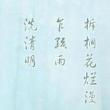 拆桐花爛漫
乍疏雨
洗清明